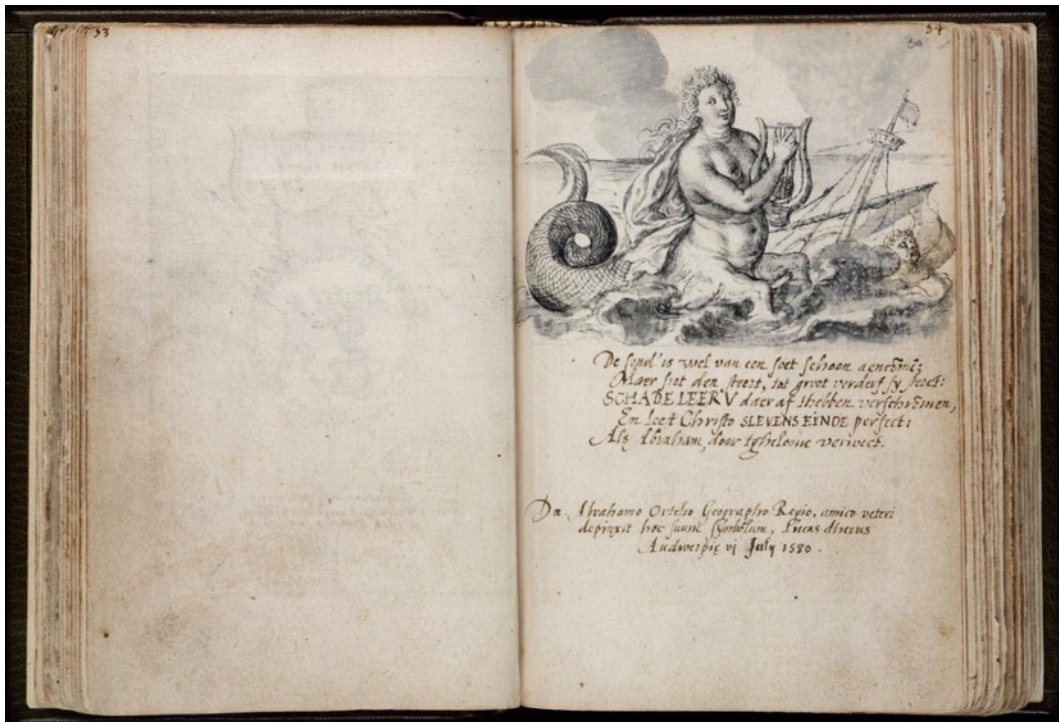 53
54
De sond' is wel van een soet schoon
Maer siet den steert, tot groot verderf sy
SCHADE LEER'V daer af thebben
En leeft Christo SLEVENS EINDE perfect:
Als Abraham, door tghelooue verweet.
Dn. Abrahamo Ortelio Geographo Regio, amico veteri
depinxit hoc suum Symbolum, Lucas
Andwerpię vj July 1580.